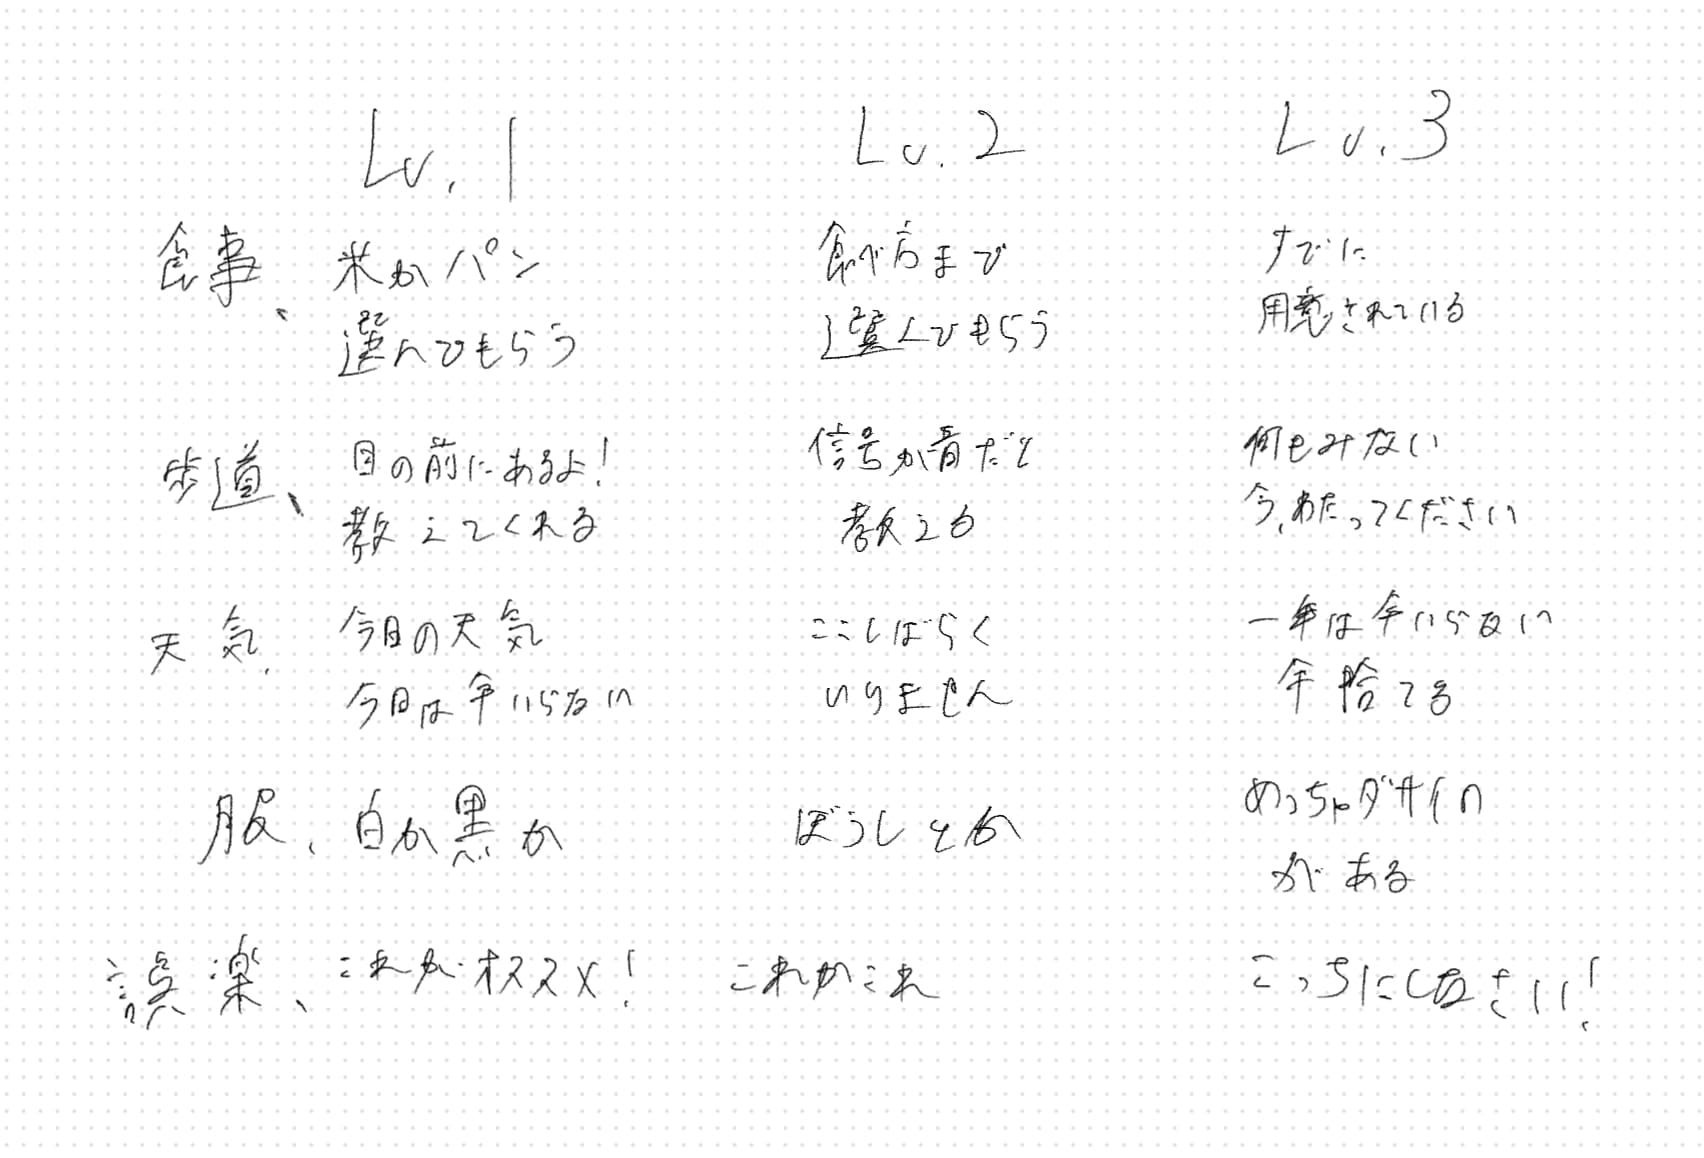 Lv.1
Lv.2
Lv.3
食事、
米かパン
選んでもらう
食べ方まで
選んでもらう
すでに
用意されている
歩道、
目の前にあるよ!
教えてくれる
信号が青だと
教える
何もみない
今、わたってください
天気、
今日の天気
今日は傘いらない
ここしばらく
いりません
一年は傘いらない
傘捨てる
服、
白か黒か
ぼうしとか
めっちゃダサイの
がある
誤楽、
これがオススメ!
これかこれ
こっちにしなさい!